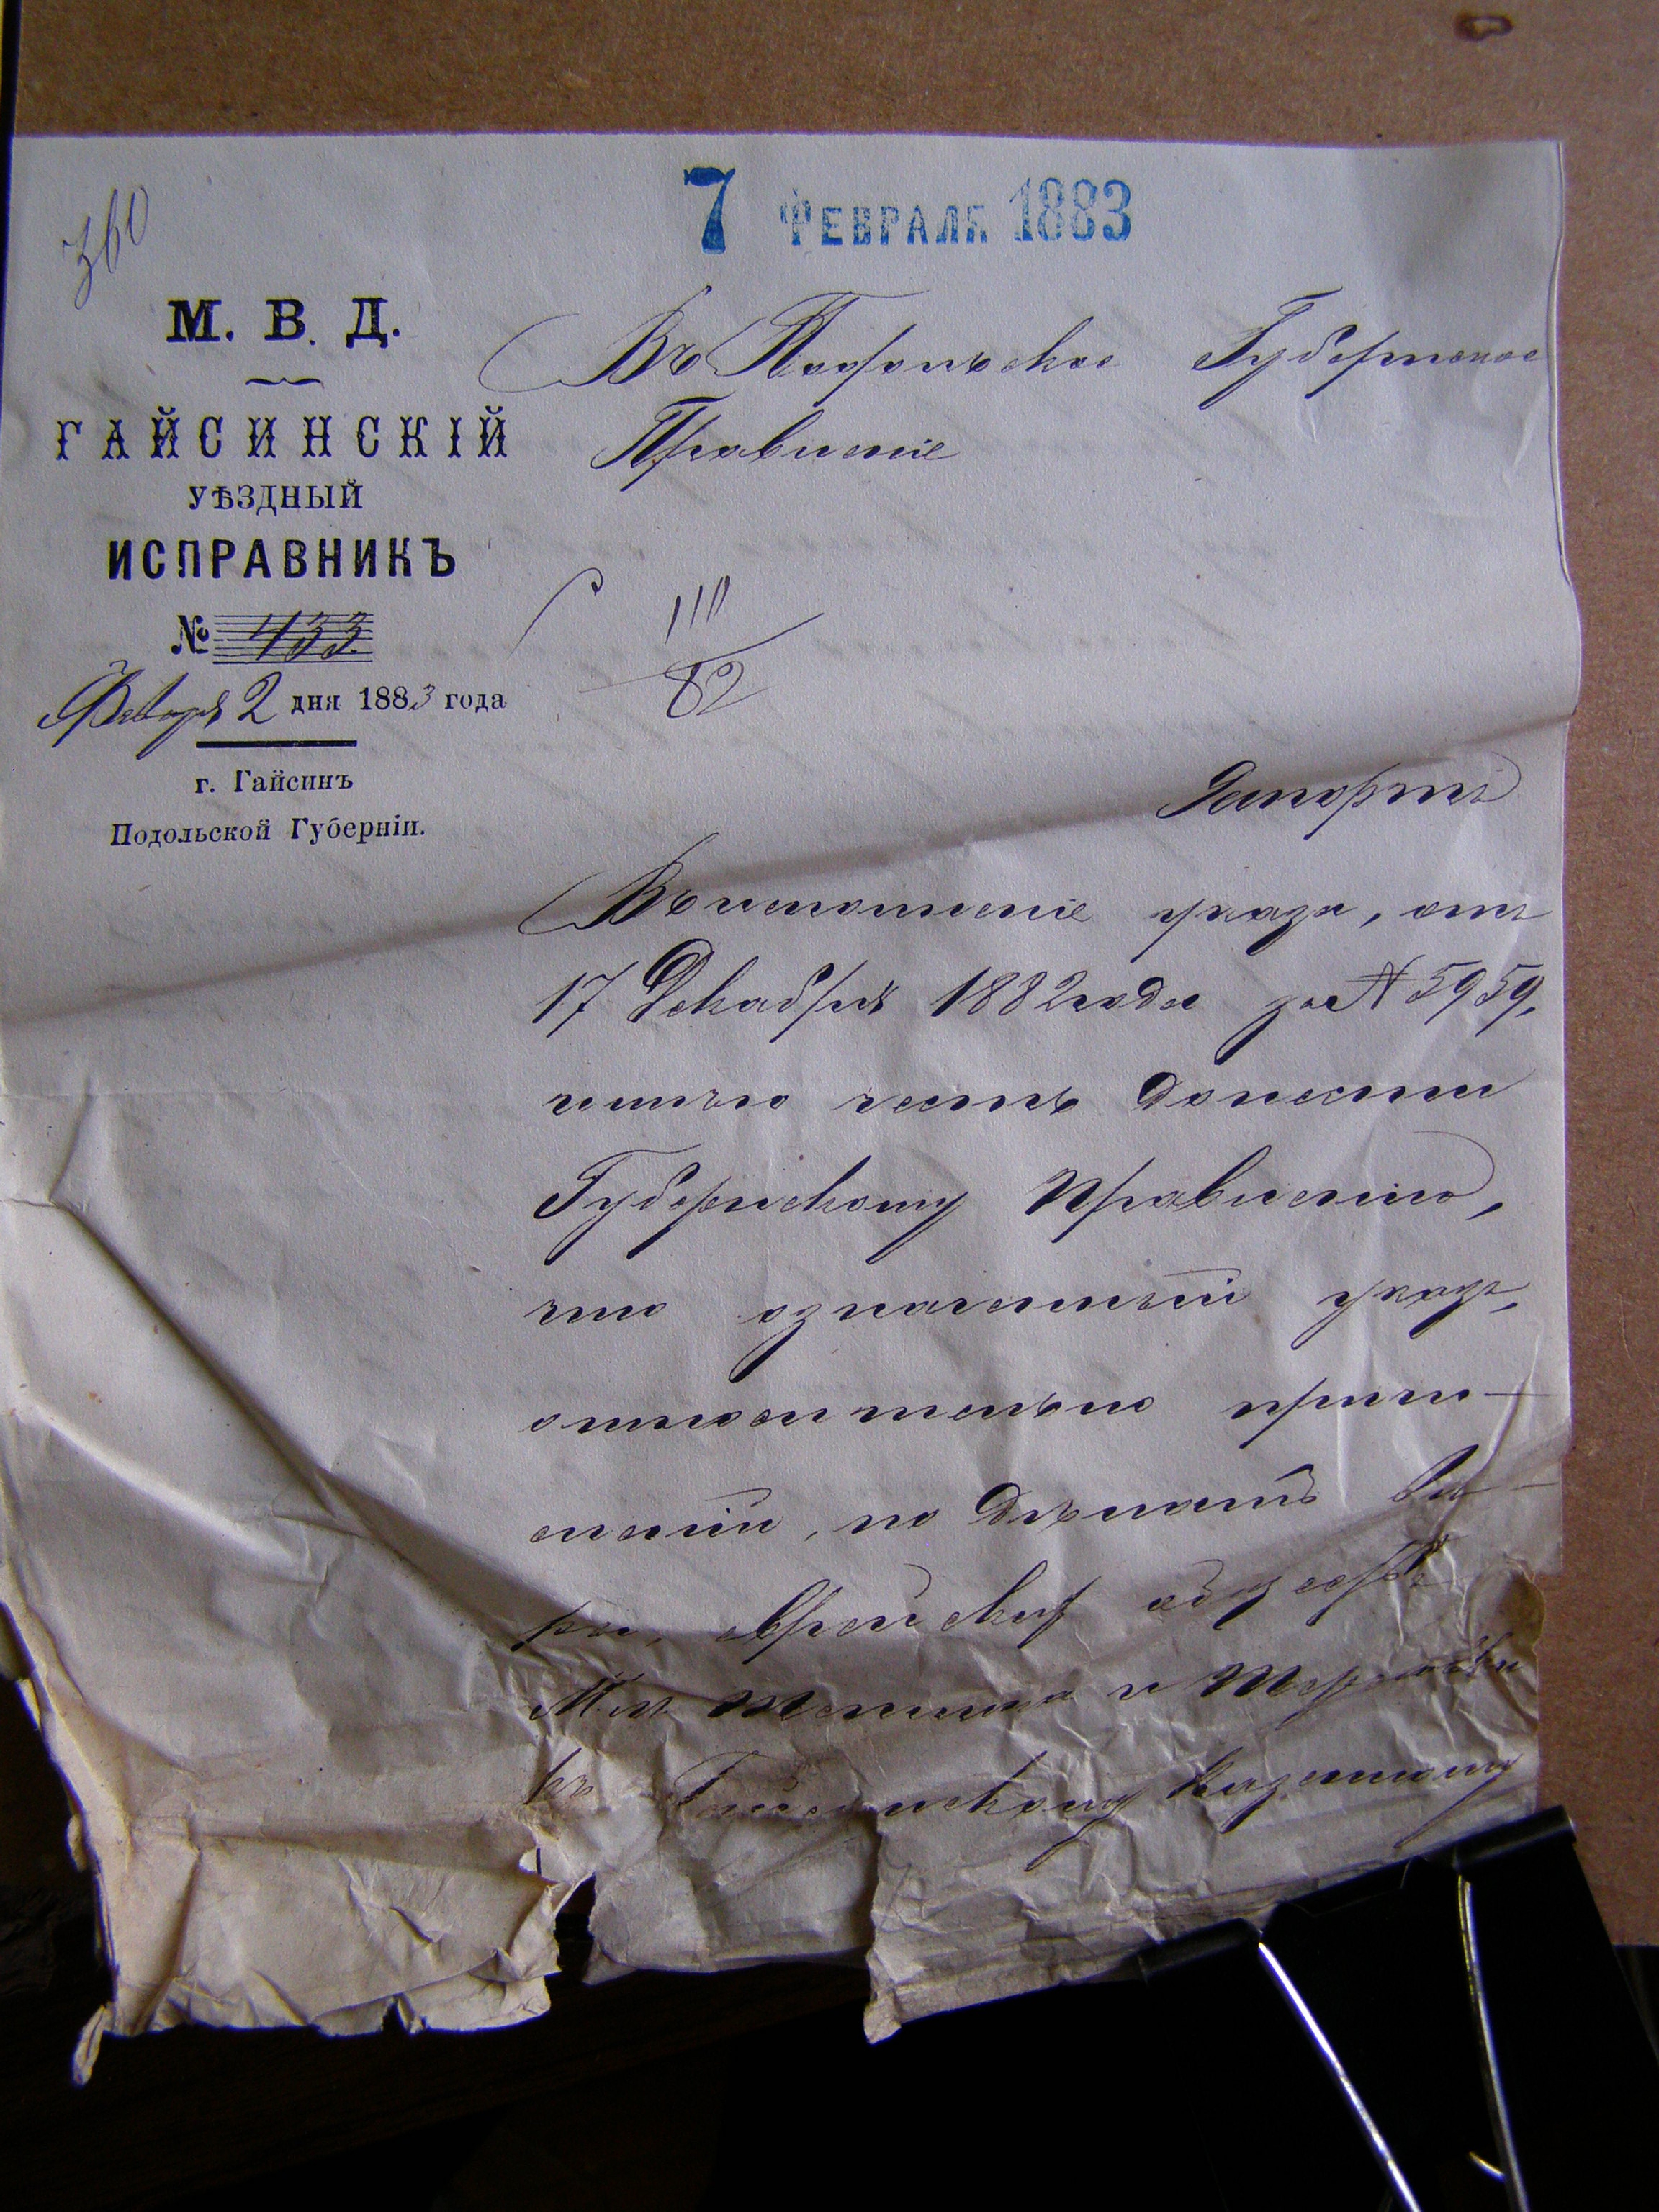 7 ФЕВРАЛЯ 1883
360
М. В. Д.
ГАЙСИНСКІЙ
УѢЗДНЫЙ
ИСПРАВНИКЪ
№ 433.
Февраля 2 дня 1883 года
г. Гайсинъ
Подольской Губерніи.
Въ Подольское Губернское
Правленіе
110
82
Рапортъ
Во исполненіе указа, отъ
17 Декабря 1882 года за № 5959,
имѣю честь донести
Губернскому Правленію,
что означенный указъ,
относительно причи-
сленій, по дѣламъ вѣ-
ры, еврейских обществъ
М.м. Теплика и Терновки
къ Гайсинскому Казенному